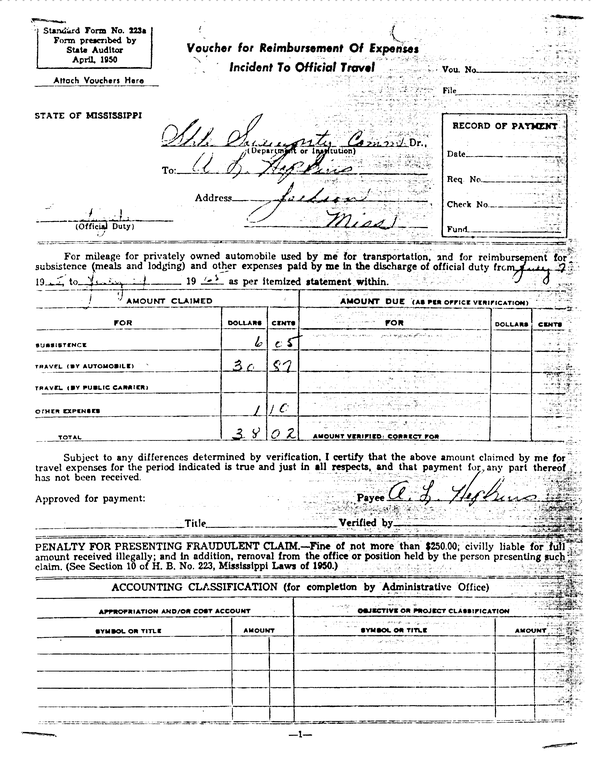 Standard Form No. 223a
Form prescribed by
State Auditor
April, 1950
Attach Vouchers Here
Voucher for Reimbursement Of Expenses
Incident To Official Travel
Vou. No.
File
STATE OF MISSISSIPPI
RECORD OF PAYMENT
Date
Req. No.
Check No.
Fund
Comm Dr.,
(Department or Institution)
To: A L Hopkins
Address Jackson
Miss
(Official Duty)
For mileage for privately owned automobile used by me for transportation, and for reimbursement for
subsistence (meals and lodging) and other expenses paid by me in the discharge of official duty from
19 to 19 as per itemized statement within.
AMOUNT CLAIMED AMOUNT DUE (AS PER OFFICE VERIFICATION)
FOR DOLLARS CENTS FOR DOLLARS CENTS
SUBSISTENCE 6 05
TRAVEL (BY AUTOMOBILE) 30 87
TRAVEL (BY PUBLIC CARRIER)
OTHER EXPENSES 1 10
TOTAL 38 02 AMOUNT VERIFIED: CORRECT FOR
Subject to any differences determined by verification, I certify that the above amount claimed by me for
travel expenses for the period indicated is true and just in all respects, and that payment for any part thereof
has not been received.
Approved for payment: Payee A. L. Hopkins
Title Verified by
PENALTY FOR PRESENTING FRAUDULENT CLAIM.—Fine of not more than $250.00; civilly liable for full
amount received illegally; and in addition, removal from the office or position held by the person presenting such
claim. (See Section 10 of H. B. No. 223, Mississippi Laws of 1950.)
ACCOUNTING CLASSIFICATION (for completion by Administrative Office)
APPROPRIATION AND/OR COST ACCOUNT OBJECTIVE OR PROJECT CLASSIFICATION
SYMBOL OR TITLE AMOUNT SYMBOL OR TITLE AMOUNT
—1—